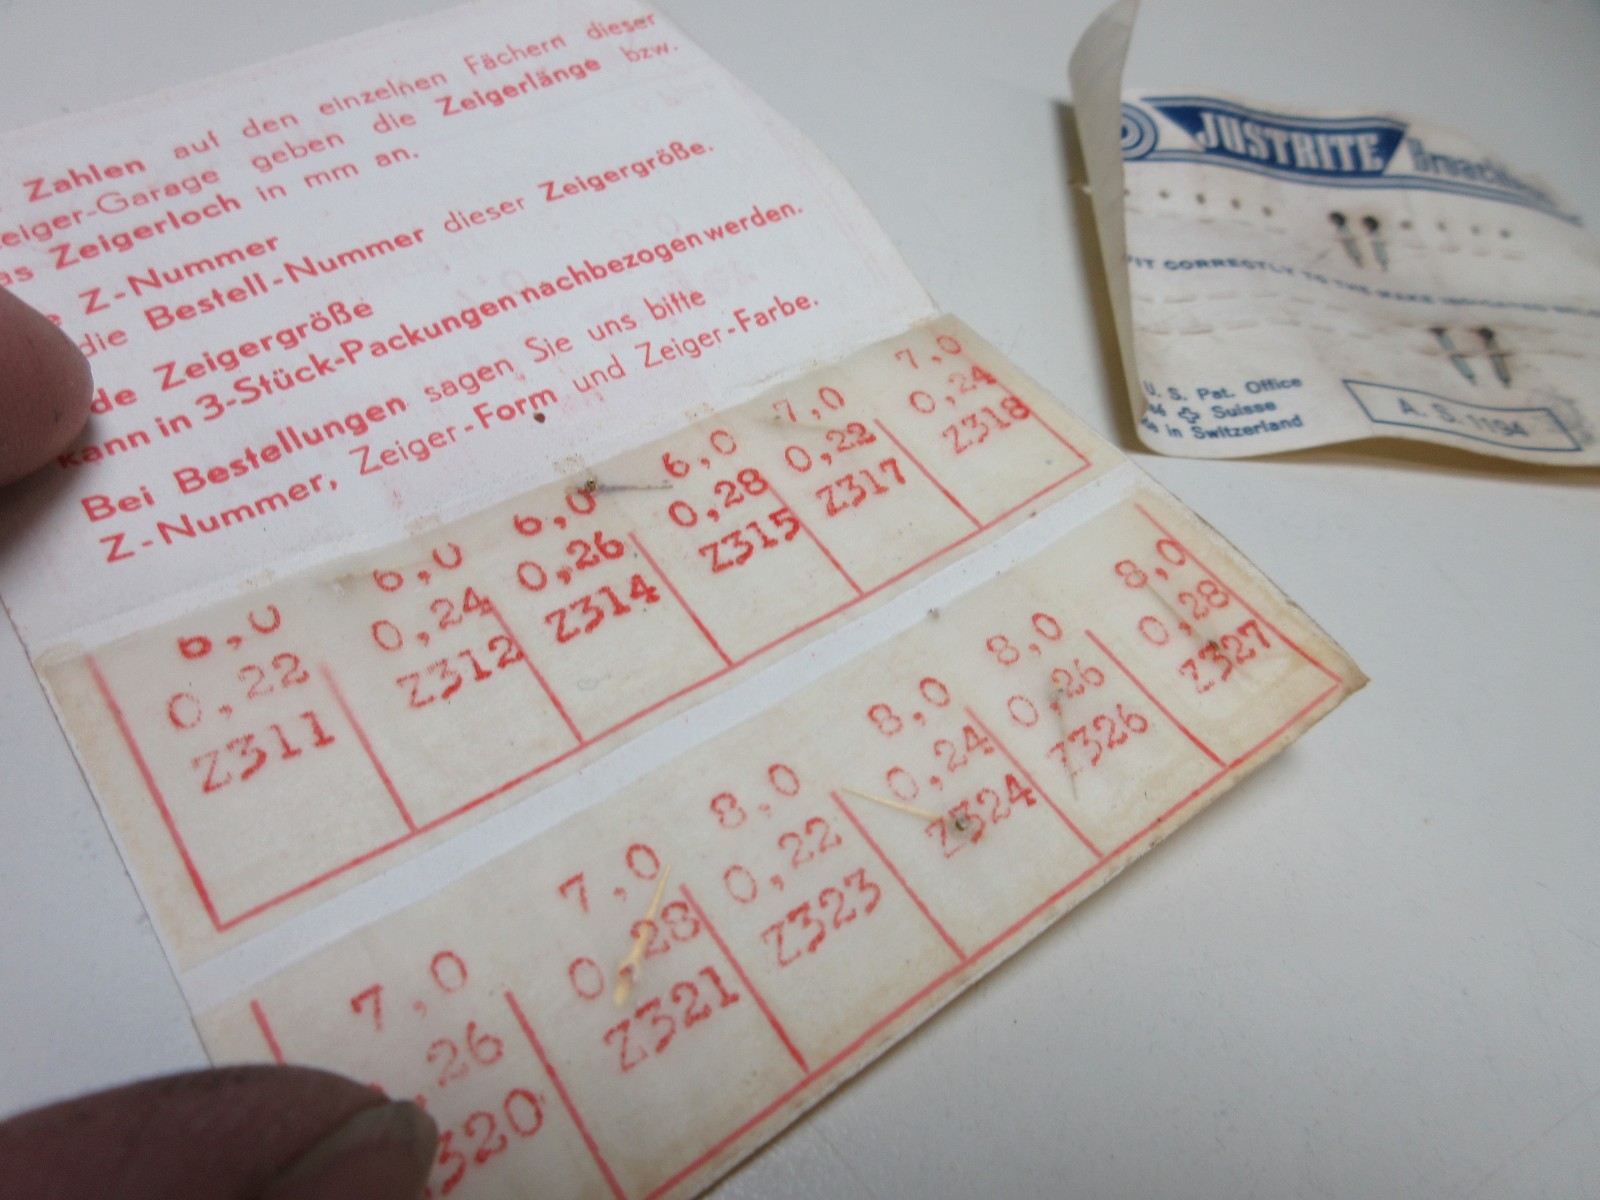 Zahlen auf den einzelnen Fächern dieser
eiger-Garage geben die Zeigerlänge bzw.
as Zeigerloch in mm an.
e Z-Nummer
die Bestell-Nummer dieser Zeigergröße.
de Zeigergröße
kann in 3-Stück-Packungen nachbezogen werden.
Bei Bestellungen sagen Sie uns bitte
Z-Nummer, Zeiger-Form und Zeiger-Farbe.
6,0
0,22
Z311
6,0
0,24
Z312
6,0
0,26
Z314
6,0
0,28
Z315
7,0
0,22
Z317
7,0
0,24
Z318
7,0
,26
320
7,0
0,28
Z321
8,0
0,22
Z323
8,0
0,24
Z324
8,0
0,26
Z326
8,0
0,28
Z327
JUSTRITE
FIT CORRECTLY TO THE MAKE INDICATED
U. S. Pat. Office
Suisse
in Switzerland
A. S. 1194